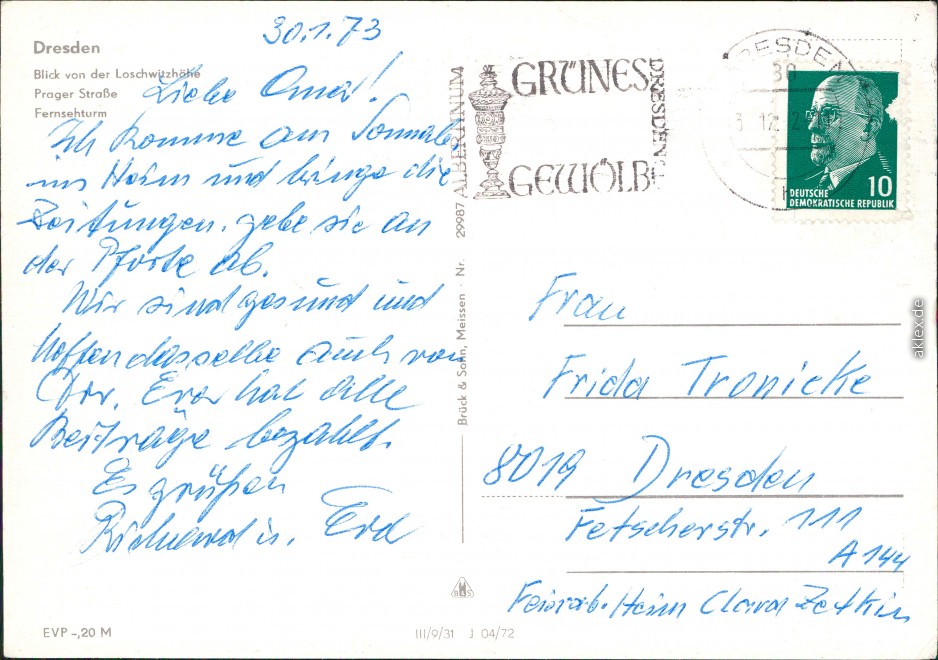 30.1.73
Dresden
Blick von der Loschwitzhöhe
Prager Straße
Fernsehturm
Liebe Oma!
Ich komme am Sonnab.
ins Heim und bringe die
Zeitungen, gebe sie an
der Pforte ab.
Wir sind gesund und
hoffen dasselbe auch von
Dir. hat alle
Beiträge bezahlt.
Es grüßen
Richard u.
EVP -,20 M
III/9/31 J 04/72
Brück & Sohn, Meissen · Nr. 29987
B&S
ALBERTINUM
GRÜNES
GEWÖLBE
DRESDEN
DRESDEN
DEUTSCHE
DEMOKRATISCHE REPUBLIK
10
Frau
Frida Tronicke
8019 Dresden
Fetscherstr. 111
A 144
Feierab. Heim Clara Zetkin
aklex.de